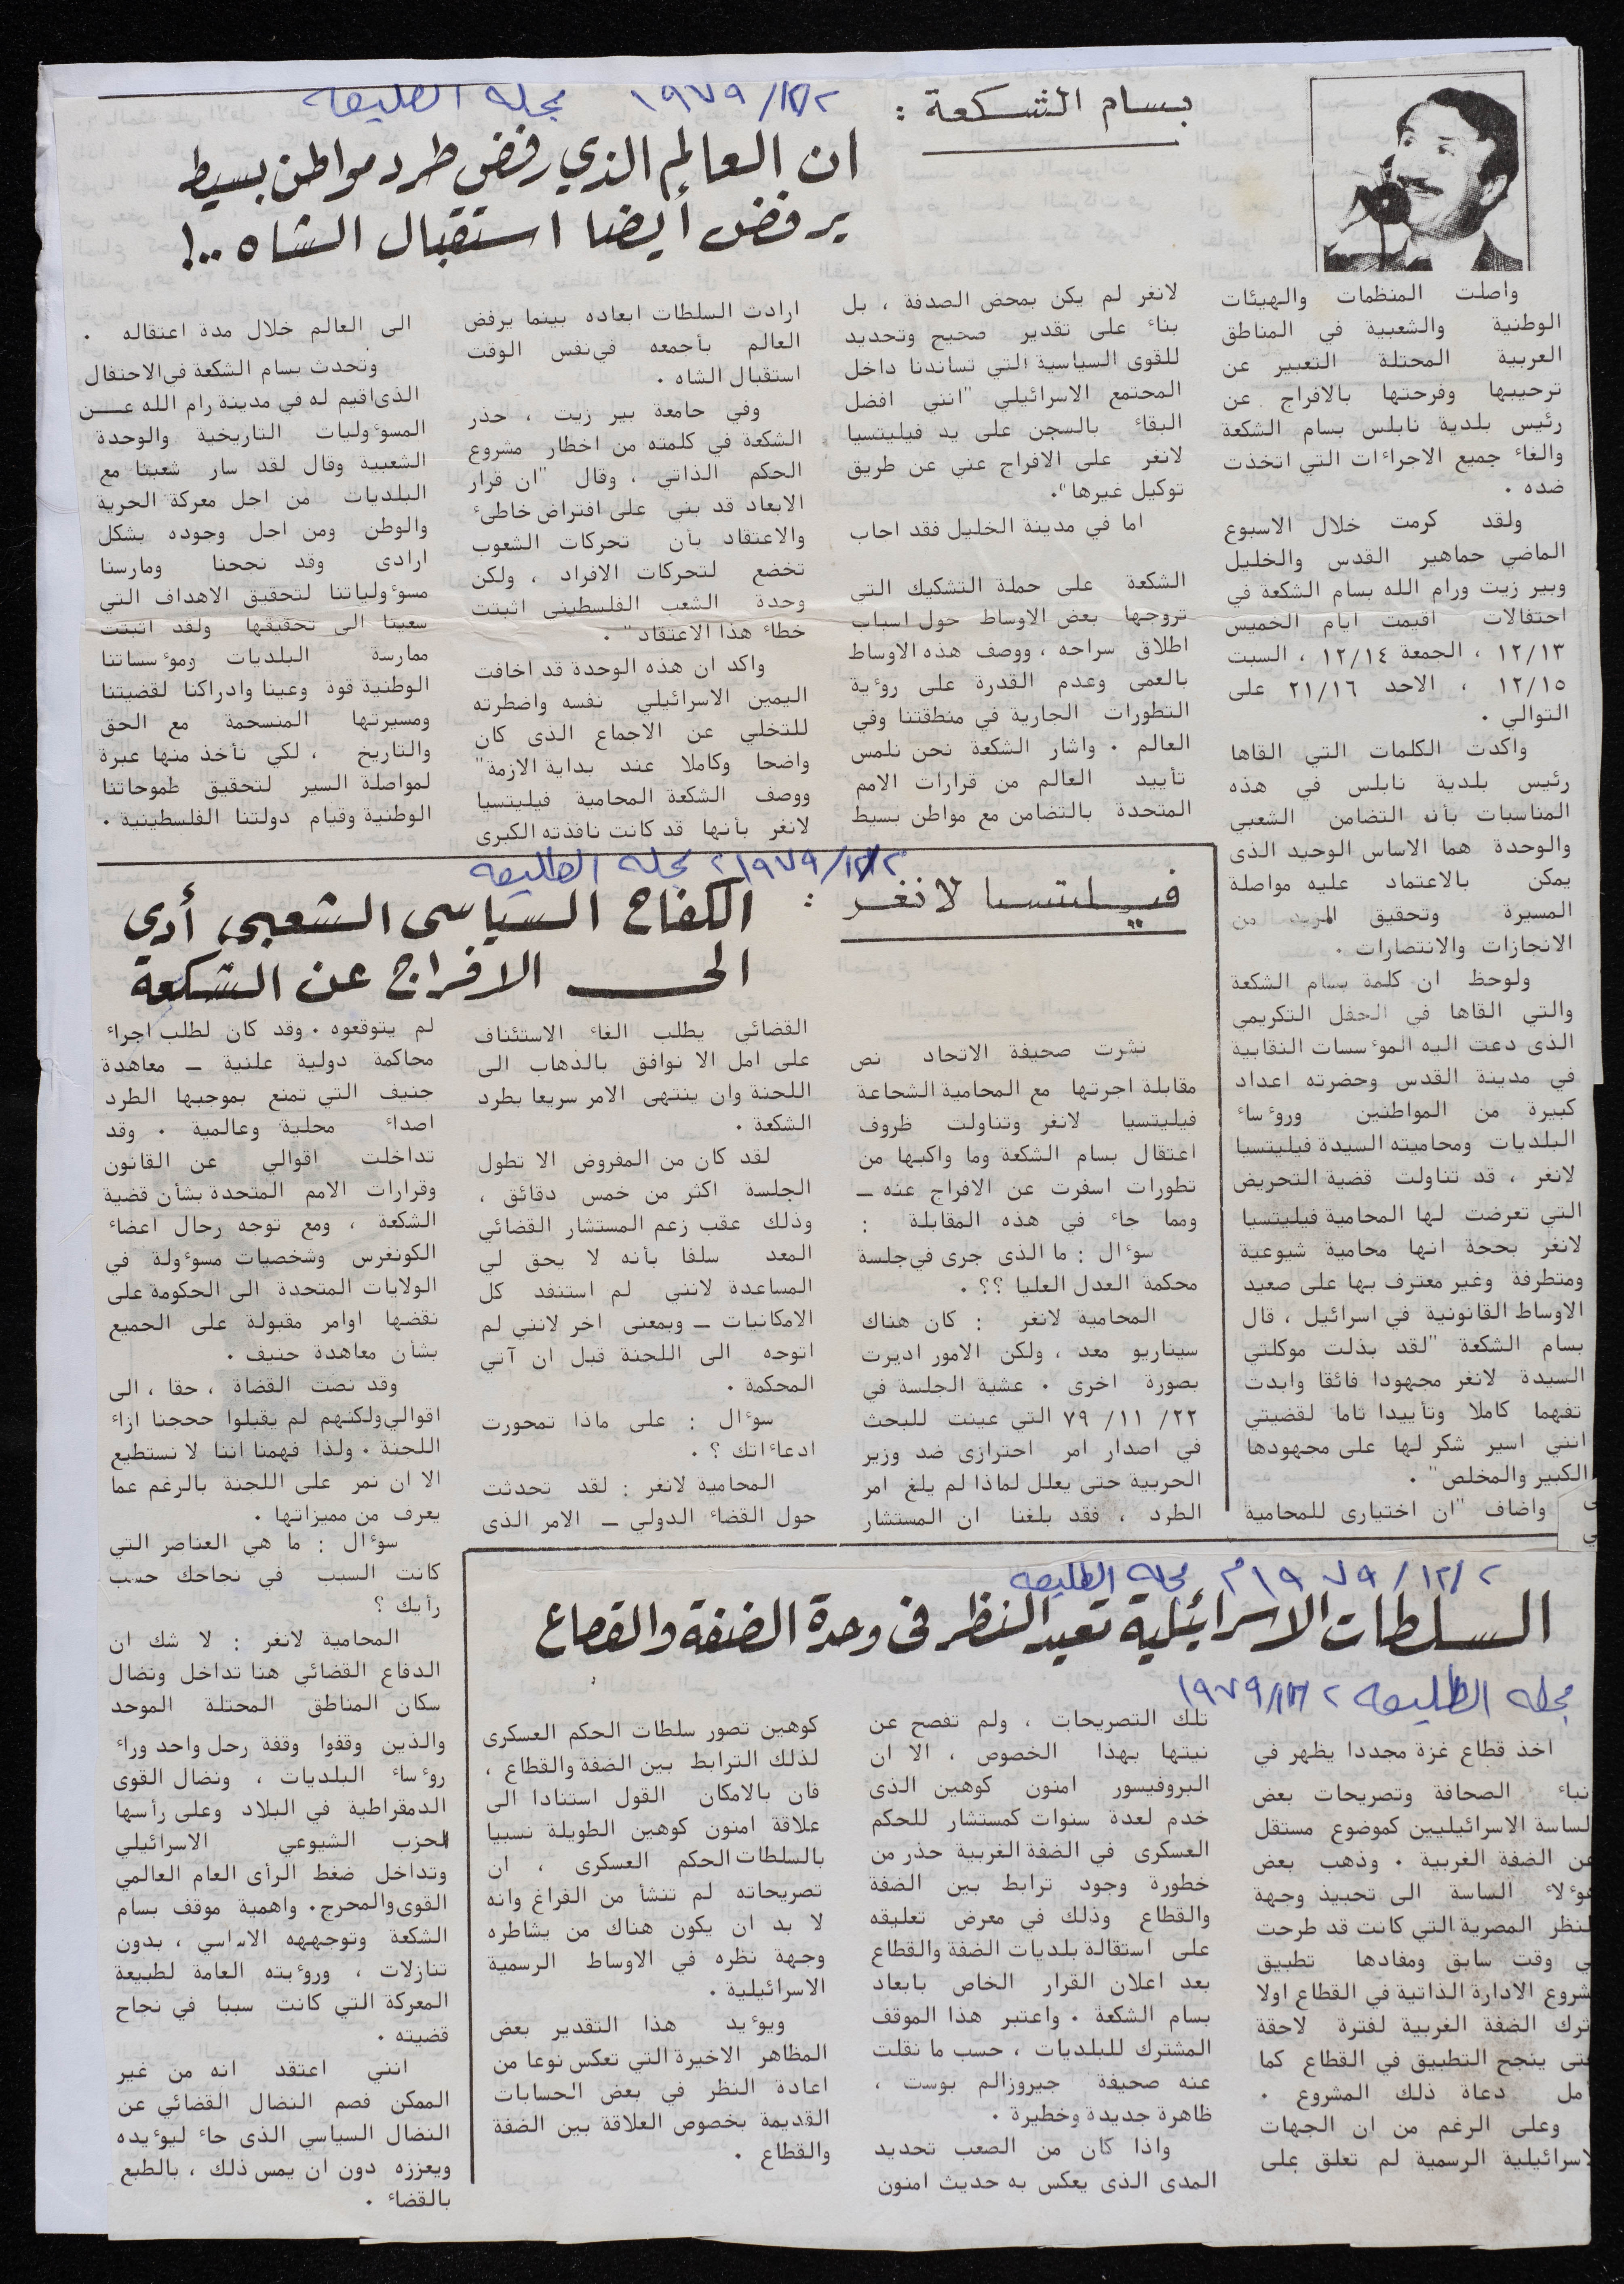 مجلة الطليعة ١٩٧٩/١٢/٢
بسام الشكعة :
ان العالم الذي رفض طرد مواطن بسيط
يرفض أيضا استقبال الشاه ..!
واصلت المنظمات والهيئات
الوطنية والشعبية في المناطق
العربية المحتلة التعبير عن
ترحيبها وفرحتها بالافراج عن
رئيس بلدية نابلس بسام الشكعة
والغاء جميع الاجراءات التي اتخذت
ضده .
ولقد كرمت خلال الاسبوع
الماضي جماهير القدس والخليل
وبير زيت ورام الله بسام الشكعة في
احتفالات اقيمت ايام الخميس
١٢/١٣ ، الجمعة ١٢/١٤ ، السبت
١٢/١٥ ، الاحد ٢١/١٦ على
التوالي .
واكدت الكلمات التي القاها
رئيس بلدية نابلس في هذه
المناسبات بأن التضامن الشعبي
والوحدة هما الاساس الوحيد الذى
يمكن بالاعتماد عليه مواصلة
المسيرة وتحقيق المزيد من
الانجازات والانتصارات .
ولوحظ ان كلمة بسام الشكعة
والتي القاها في الحفل التكريمي
الذى دعت اليه المؤسسات النقابية
في مدينة القدس وحضرته اعداد
كبيرة من المواطنين ورؤساء
البلديات ومحاميته السيدة فيليتسيا
لانغر ، قد تناولت قضية التحريض
التي تعرضت لها المحامية فيليتسيا
لانغر بحجة انها محامية شيوعية
ومتطرفة وغير معترف بها على صعيد
الاوساط القانونية في اسرائيل ، قال
بسام الشكعة "لقد بذلت موكلتي
السيدة لانغر مجهودا فائقا وابدت
تفهما كاملا وتأييدا تاما لقضيتي
انني اسير شكر لها على مجهودها
الكبير والمخلص" .
واضاف "ان اختيارى للمحامية
لانغر لم يكن بمحض الصدفة ، بل
بناء على تقدير صحيح وتحديد
للقوى السياسية التي تساندنا داخل
المجتمع الاسرائيلي "انني افضل
البقاء بالسجن على يد فيليتسيا
لانغر على الافراج عني عن طريق
توكيل غيرها".
اما في مدينة الخليل فقد اجاب
الشكعة على حملة التشكيك التي
تروجها بعض الاوساط حول اسباب
اطلاق سراحه ، ووصف هذه الاوساط
بالعمى وعدم القدرة على رؤية
التطورات الجارية في منطقتنا وفي
العالم . واشار الشكعة نحن نلمس
تأييد العالم من قرارات الامم
المتحدة بالتضامن مع مواطن بسيط
ارادت السلطات ابعاده بينما يرفض
العالم بأجمعه في نفس الوقت
استقبال الشاه .
وفي جامعة بير زيت ، حذر
الشكعة في كلمته من اخطار مشروع
الحكم الذاتي ، وقال "ان قرار
الابعاد قد بني على افتراض خاطىء
والاعتقاد بأن تحركات الشعوب
تخضع لتحركات الافراد ، ولكن
وحدة الشعب الفلسطينى اثبتت
خطاء هذا الاعتقاد" .
واكد ان هذه الوحدة قد اخافت
اليمين الاسرائيلي نفسه واضطرته
للتخلي عن الاجماع الذى كان
واضحا وكاملا عند بداية الازمة"
ووصف الشكعة المحامية فيليتسيا
لانغر بأنها قد كانت نافذته الكبرى
الى العالم خلال مدة اعتقاله .
وتحدث بسام الشكعة في الاحتفال
الذى اقيم له في مدينة رام الله عن
المسؤوليات التاريخية والوحدة
الشعبية وقال لقد سار شعبنا مع
البلديات من اجل معركة الحرية
والوطن ومن اجل وجوده بشكل
ارادى وقد نجحنا ومارسنا
مسؤولياتنا لتحقيق الاهداف التي
سعينا الى تحقيقها ولقد اثبتت
ممارسة البلديات ومؤسساتنا
الوطنية قوة وعينا وادراكنا لقضيتنا
ومسيرتها المنسجمة مع الحق
والتاريخ ، لكي نأخذ منها عبرة
لمواصلة السير لتحقيق طموحاتنا
الوطنية وقيام دولتنا الفلسطينية .
١٩٧٩/١٢/٢ مجلة الطليعة
فيليتسيا لانغر :
الكفاح السياسي الشعبي أدى
الى الافراج عن الشكعة
نشرت صحيفة الاتحاد نص
مقابلة اجرتها مع المحامية الشجاعة
فيليتسيا لانغر وتناولت ظروف
اعتقال بسام الشكعة وما واكبها من
تطورات اسفرت عن الافراج عنه ـ
ومما جاء في هذه المقابلة :
سؤال : ما الذى جرى في جلسة
محكمة العدل العليا ؟؟ .
المحامية لانغر : كان هناك
سيناريو معد ، ولكن الامور اديرت
بصورة اخرى . عشية الجلسة في
٢٢/ ١١/ ٧٩ التي عينت للبحث
في اصدار امر احترازى ضد وزير
الحربية حتى يعلل لماذا لم يلغ امر
الطرد ، فقد بلغنا ان المستشار
القضائي يطلب الغاء الاستئناف
على امل الا نوافق بالذهاب الى
اللجنة وان ينتهى الامر سريعا بطرد
الشكعة .
لقد كان من المفروض الا تطول
الجلسة اكثر من خمس دقائق ،
وذلك عقب زعم المستشار القضائي
المعد سلفا بأنه لا يحق لي
المساعدة لانني لم استنفد كل
الامكانيات ـ وبمعنى اخر لانني لم
اتوجه الى اللجنة قبل ان آتي
المحكمة .
سؤال : على ماذا تمحورت
ادعاءاتك ؟ .
المحامية لانغر : لقد تحدثت
حول القضاء الدولي ـ الامر الذى
لم يتوقعوه . وقد كان لطلب اجراء
محاكمة دولية علنية ـ معاهدة
جنيف التي تمنع بموجبها الطرد
اصداء محلية وعالمية . وقد
تداخلت اقوالي عن القانون
وقرارات الامم المتحدة بشأن قضية
الشكعة ، ومع توجه رجال اعضاء
الكونغرس وشخصيات مسؤولة في
الولايات المتحدة الى الحكومة على
نقضها اوامر مقبولة على الجميع
بشأن معاهدة جنيف .
وقد نصت القضاة ، حقا ، الى
اقوالي ولكنهم لم يقبلوا حججنا ازاء
اللجنة . ولذا فهمنا اننا لا نستطيع
الا ان نمر على اللجنة بالرغم عما
يعرف من مميزاتها .
سؤال : ما هي العناصر التي
كانت السبب في نجاحك حسب
رأيك ؟
المحامية لانغر : لا شك ان
الدفاع القضائي هنا تداخل ونضال
سكان المناطق المحتلة الموحد
والذين وقفوا وقفة رجل واحد وراء
رؤساء البلديات ، ونضال القوى
الدمقراطية في البلاد وعلى رأسها
الحزب الشيوعي الاسرائيلي
وتداخل ضغط الرأى العام العالمي
القوى والمحرج . واهمية موقف بسام
الشكعة وتوجهه الاساسي ، بدون
تنازلات ، ورؤيته العامة لطبيعة
المعركة التي كانت سببا في نجاح
قضيته .
انني اعتقد انه من غير
الممكن فصم النضال القضائي عن
النضال السياسي الذى جاء ليؤيده
ويعززه دون ان يمس ذلك ، بالطبع
بالقضاء .
١٩٧٩/١٢/٢م مجلة الطليعة
السلطات الاسرائيلية تعيد النظر في وحدة الضفة والقطاع
مجلة الطليعة ١٩٧٩/١٢/٢
اخذ قطاع غزة مجددا يظهر في
نباء الصحافة وتصريحات بعض
لساسة الاسرائيليين كموضوع مستقل
عن الضفة الغربية . وذهب بعض
هؤلاء الساسة الى تحبيذ وجهة
لنظر المصرية التي كانت قد طرحت
ي وقت سابق ومفادها تطبيق
شروع الادارة الذاتية في القطاع اولا
ترك الضفة الغربية لفترة لاحقة
تى ينجح التطبيق في القطاع كما
مل دعاة ذلك المشروع .
وعلى الرغم من ان الجهات
لاسرائيلية الرسمية لم تعلق على
تلك التصريحات ، ولم تفصح عن
نيتها بهذا الخصوص ، الا ان
البروفيسور امنون كوهين الذى
خدم لعدة سنوات كمستشار للحكم
العسكرى في الضفة الغربية حذر من
خطورة وجود ترابط بين الضفة
والقطاع وذلك في معرض تعليقه
على استقالة بلديات الضفة والقطاع
بعد اعلان القرار الخاص بابعاد
بسام الشكعة . واعتبر هذا الموقف
المشترك للبلديات ، حسب ما نقلت
عنه صحيفة جيروزالم بوست ،
ظاهرة جديدة وخطيرة .
واذا كان من الصعب تحديد
المدى الذى يعكس به حديث امنون
كوهين تصور سلطات الحكم العسكرى
لذلك الترابط بين الضفة والقطاع ،
فان بالامكان القول استنادا الى
علاقة امنون كوهين الطويلة نسبيا
بالسلطات الحكم العسكرى ، ان
تصريحاته لم تنشأ من الفراغ وانه
لا بد ان يكون هناك من يشاطره
وجهة نظره في الاوساط الرسمية
الاسرائيلية .
ويؤيد هذا التقدير بعض
المظاهر الاخيرة التي تعكس نوعا من
اعادة النظر في بعض الحسابات
القديمة بخصوص العلاقة بين الضفة
والقطاع .